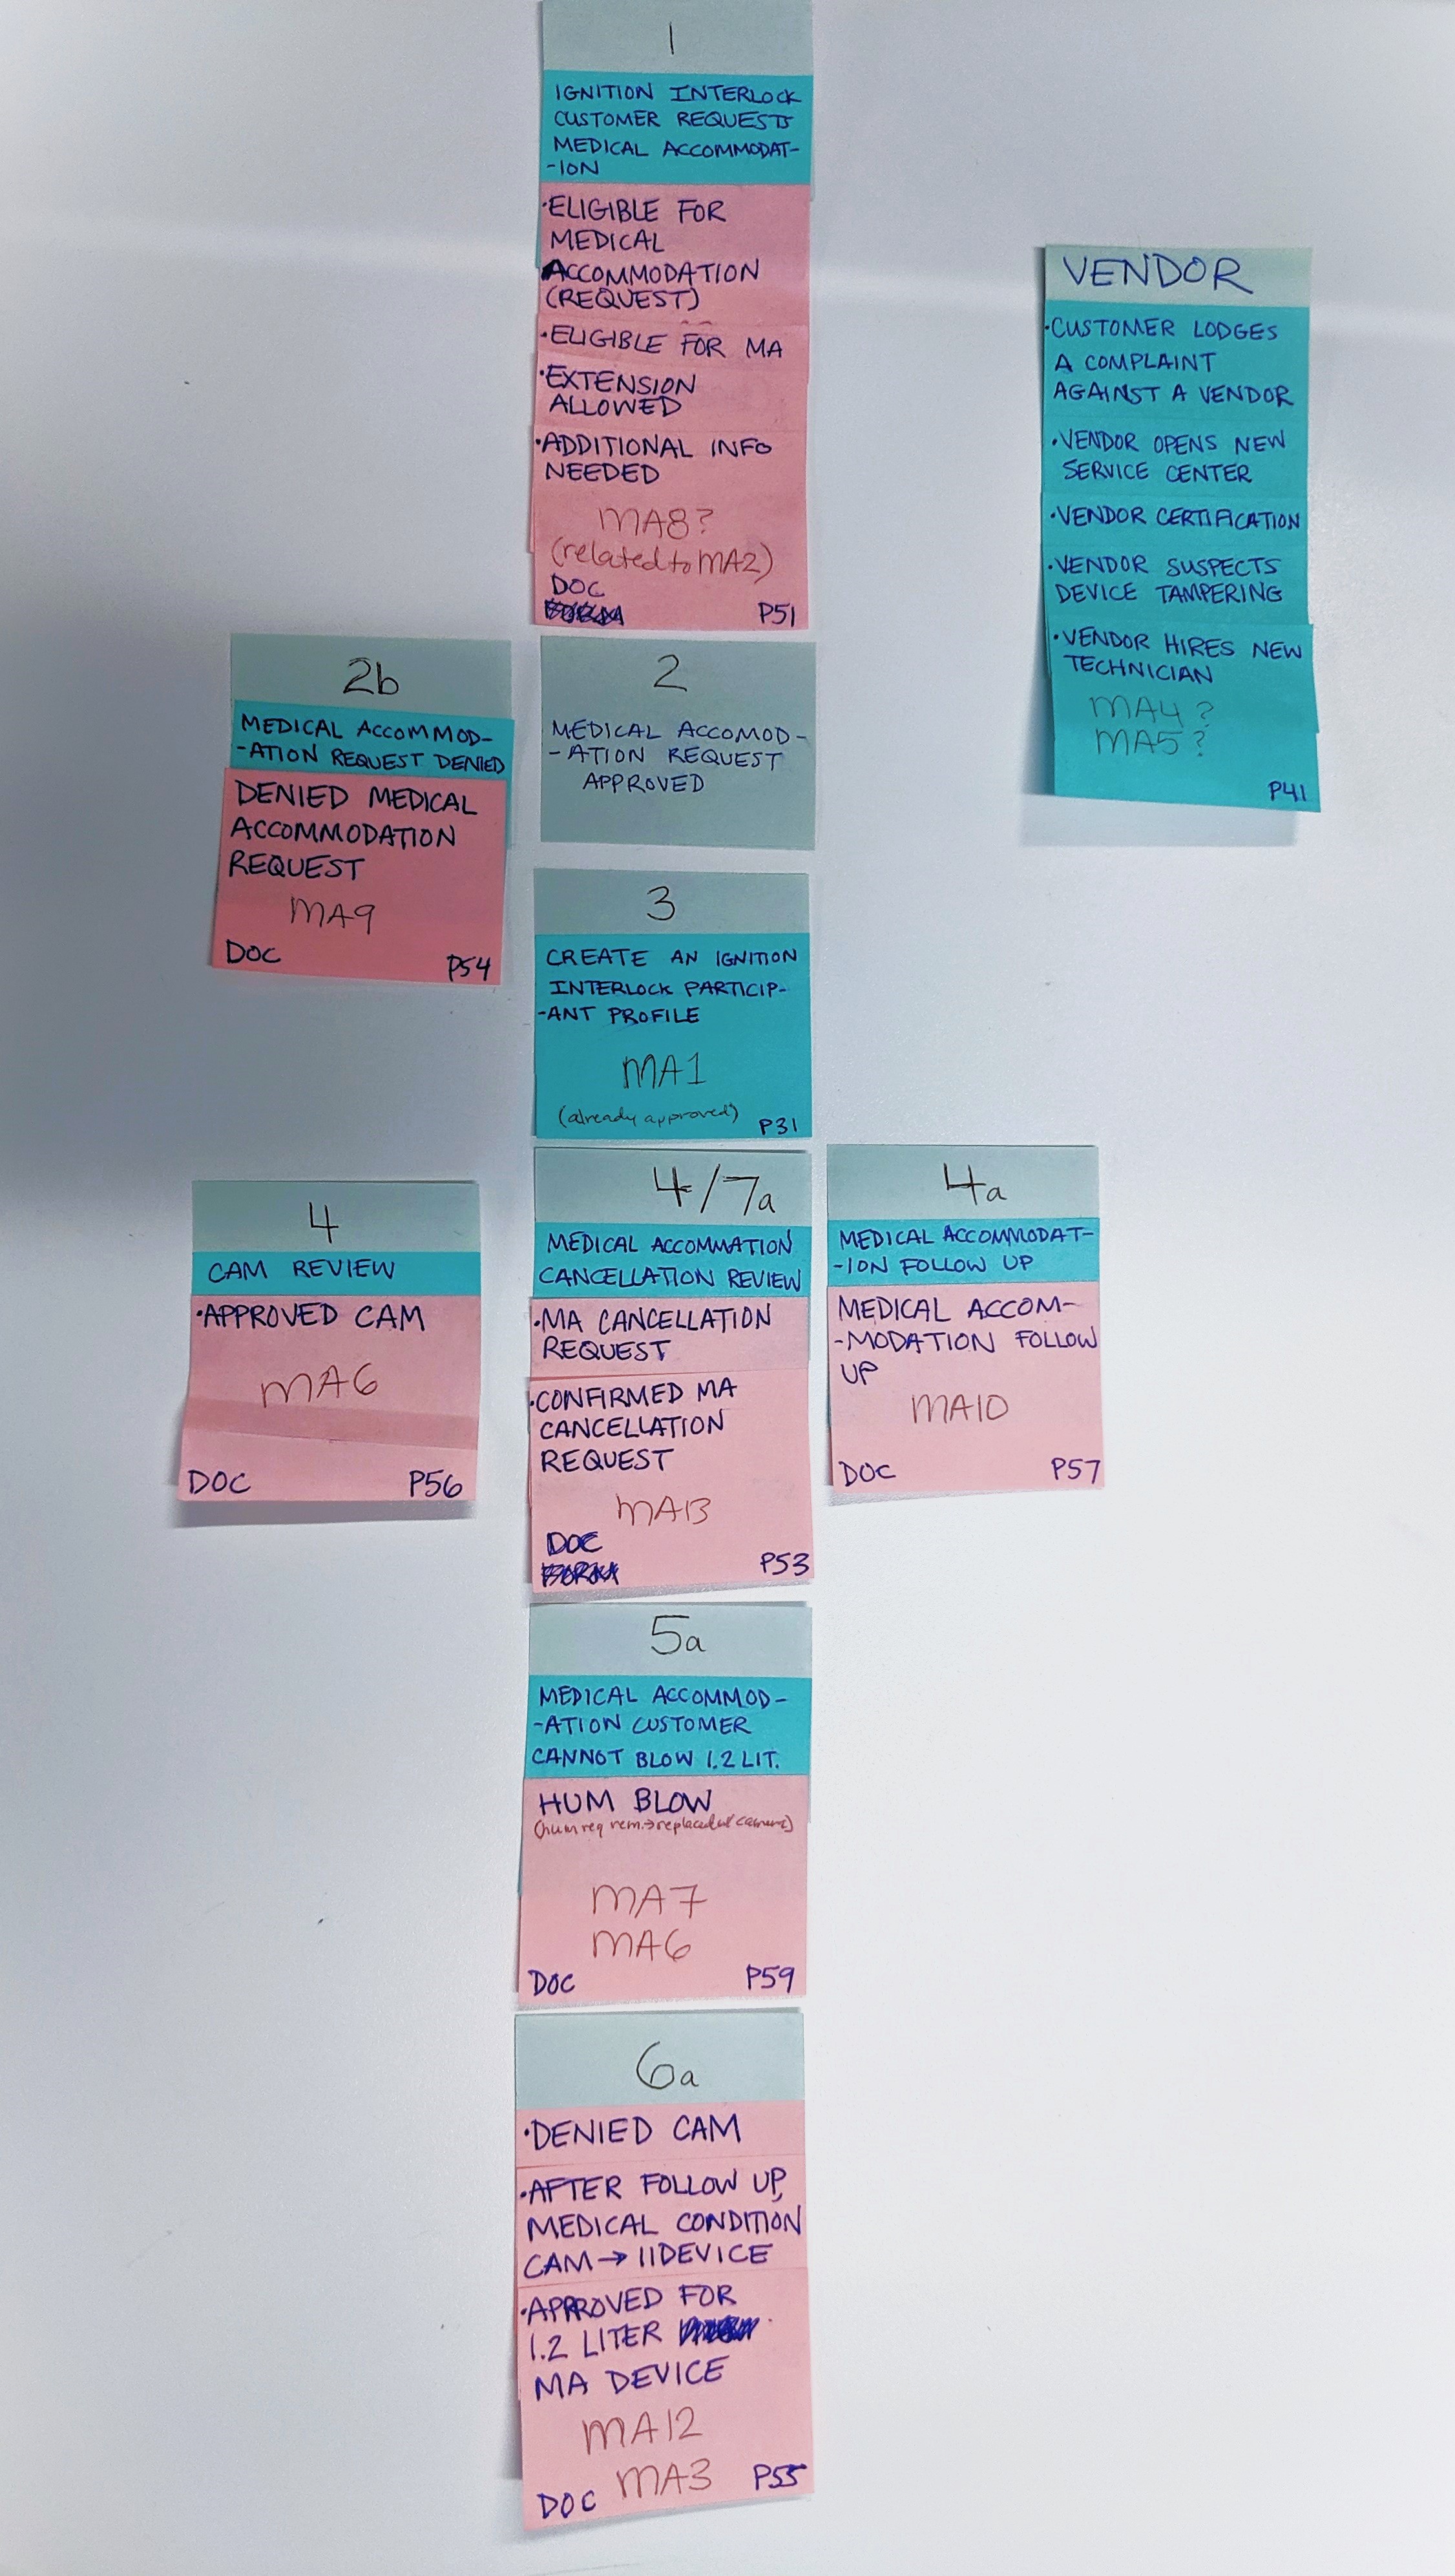 1
IGNITION INTERLOCK
CUSTOMER REQUESTS
MEDICAL ACCOMMODAT-
-ION
•ELIGIBLE FOR
MEDICAL
ACCOMMODATION
(REQUEST)
•ELIGIBLE FOR MA
•EXTENSION
ALLOWED
•ADDITIONAL INFO
NEEDED
MA8?
(related to MA2)
DOC
P51
VENDOR
•CUSTOMER LODGES
A COMPLAINT
AGAINST A VENDOR
•VENDOR OPENS NEW
SERVICE CENTER
•VENDOR CERTIFICATION
•VENDOR SUSPECTS
DEVICE TAMPERING
•VENDOR HIRES NEW
TECHNICIAN
MA4?
MA5?
P41
2b
MEDICAL ACCOMMOD-
-ATION REQUEST DENIED
DENIED MEDICAL
ACCOMMODATION
REQUEST
MA9
DOC P54
2
MEDICAL ACCOMOD-
-ATION REQUEST
APPROVED
3
CREATE AN IGNITION
INTERLOCK PARTICIP-
-ANT PROFILE
MA1
(already approved) P31
4
CAM REVIEW
•APPROVED CAM
MA6
DOC P56
4/7a
MEDICAL ACCOMMATION
CANCELLATION REVIEW
•MA CANCELLATION
REQUEST
•CONFIRMED MA
CANCELLATION
REQUEST
MA13
DOC
P53
4a
MEDICAL ACCOMMODAT-
-ION FOLLOW UP
MEDICAL ACCOM-
-MODATION FOLLOW
UP
MA10
DOC P57
5a
MEDICAL ACCOMMOD-
-ATION CUSTOMER
CANNOT BLOW 1.2 LIT.
HUM BLOW
(hum req rem.→replaced w/ camera)
MA7
MA6
DOC P59
6a
•DENIED CAM
•AFTER FOLLOW UP,
MEDICAL CONDITION
CAM→IIDEVICE
•APPROVED FOR
1.2 LITER
MA DEVICE
MA12
DOC MA3 P55